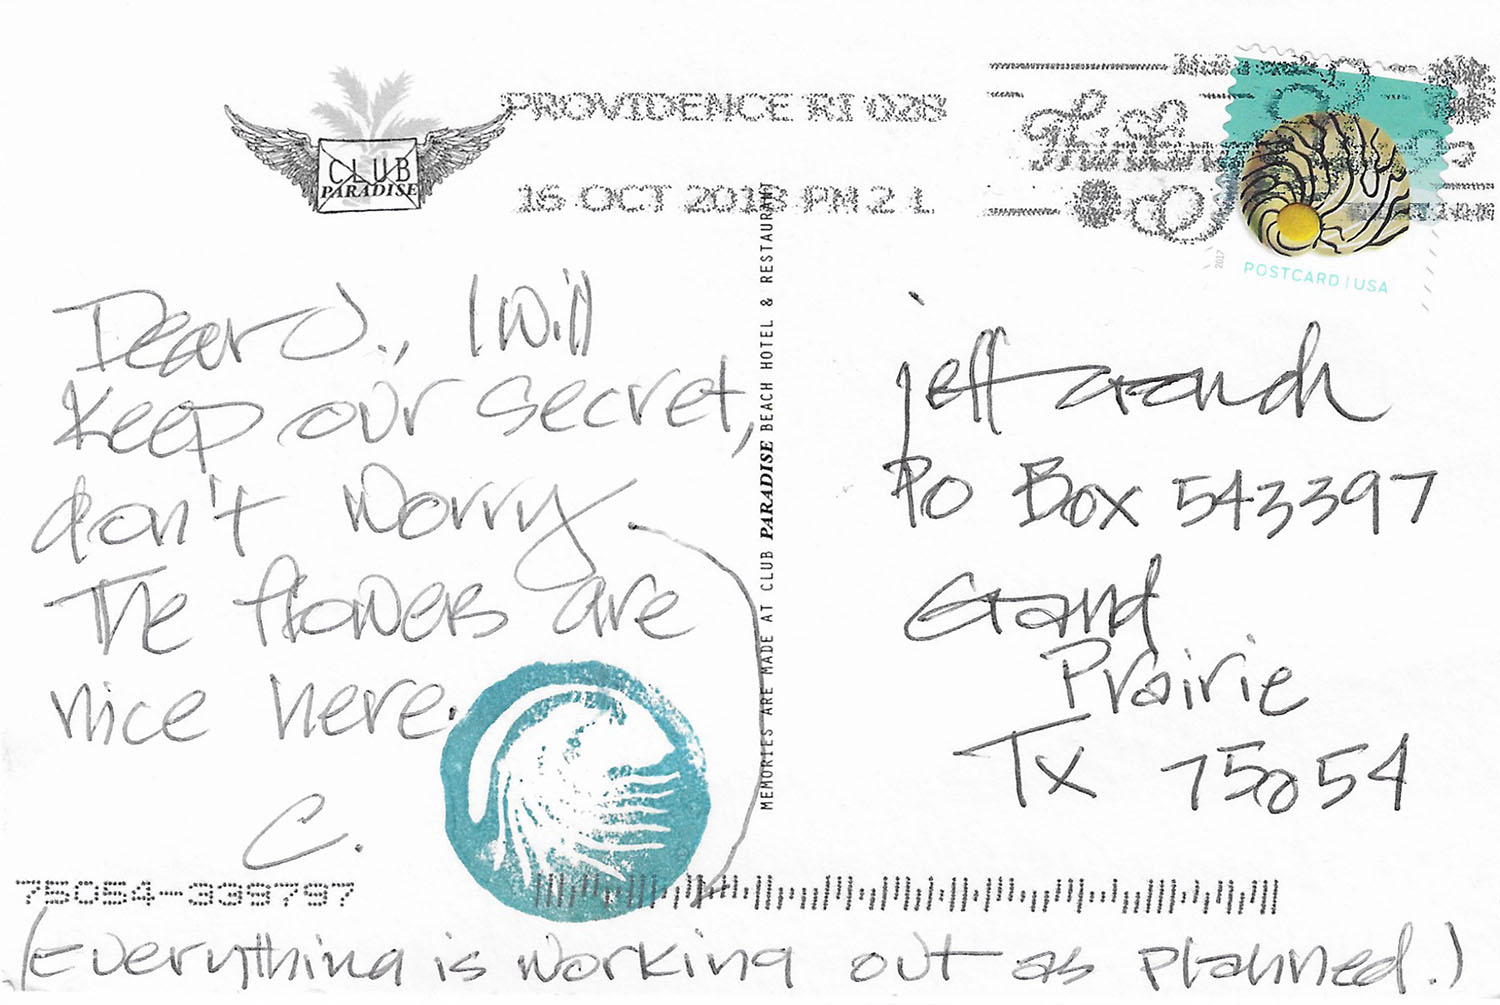 CLUB
PARADISE
PROVIDENCE RI 028
16 OCT 2018 PM 2 L
2017
POSTCARD | USA
Dear J., I will
keep our secret,
don't worry.
The flowers are
nice here.
C.
(Everything is working out as planned.)
MEMORIES ARE MADE AT CLUB PARADISE BEACH HOTEL & RESTAURANT
jeff
PO Box 543397
Grand
Prairie
TX 75054
75054-339797